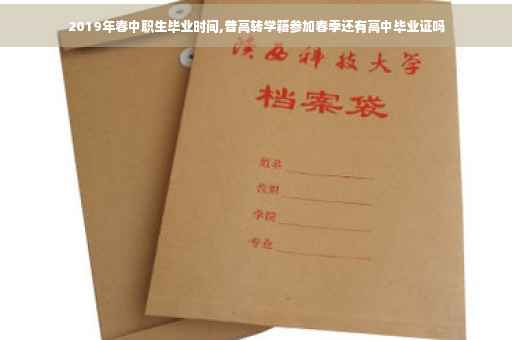 2019年春中职生毕业时间,普高转学籍参加春季还有高中毕业证吗
陕西科技大学
档案袋
姓名
学院
专业